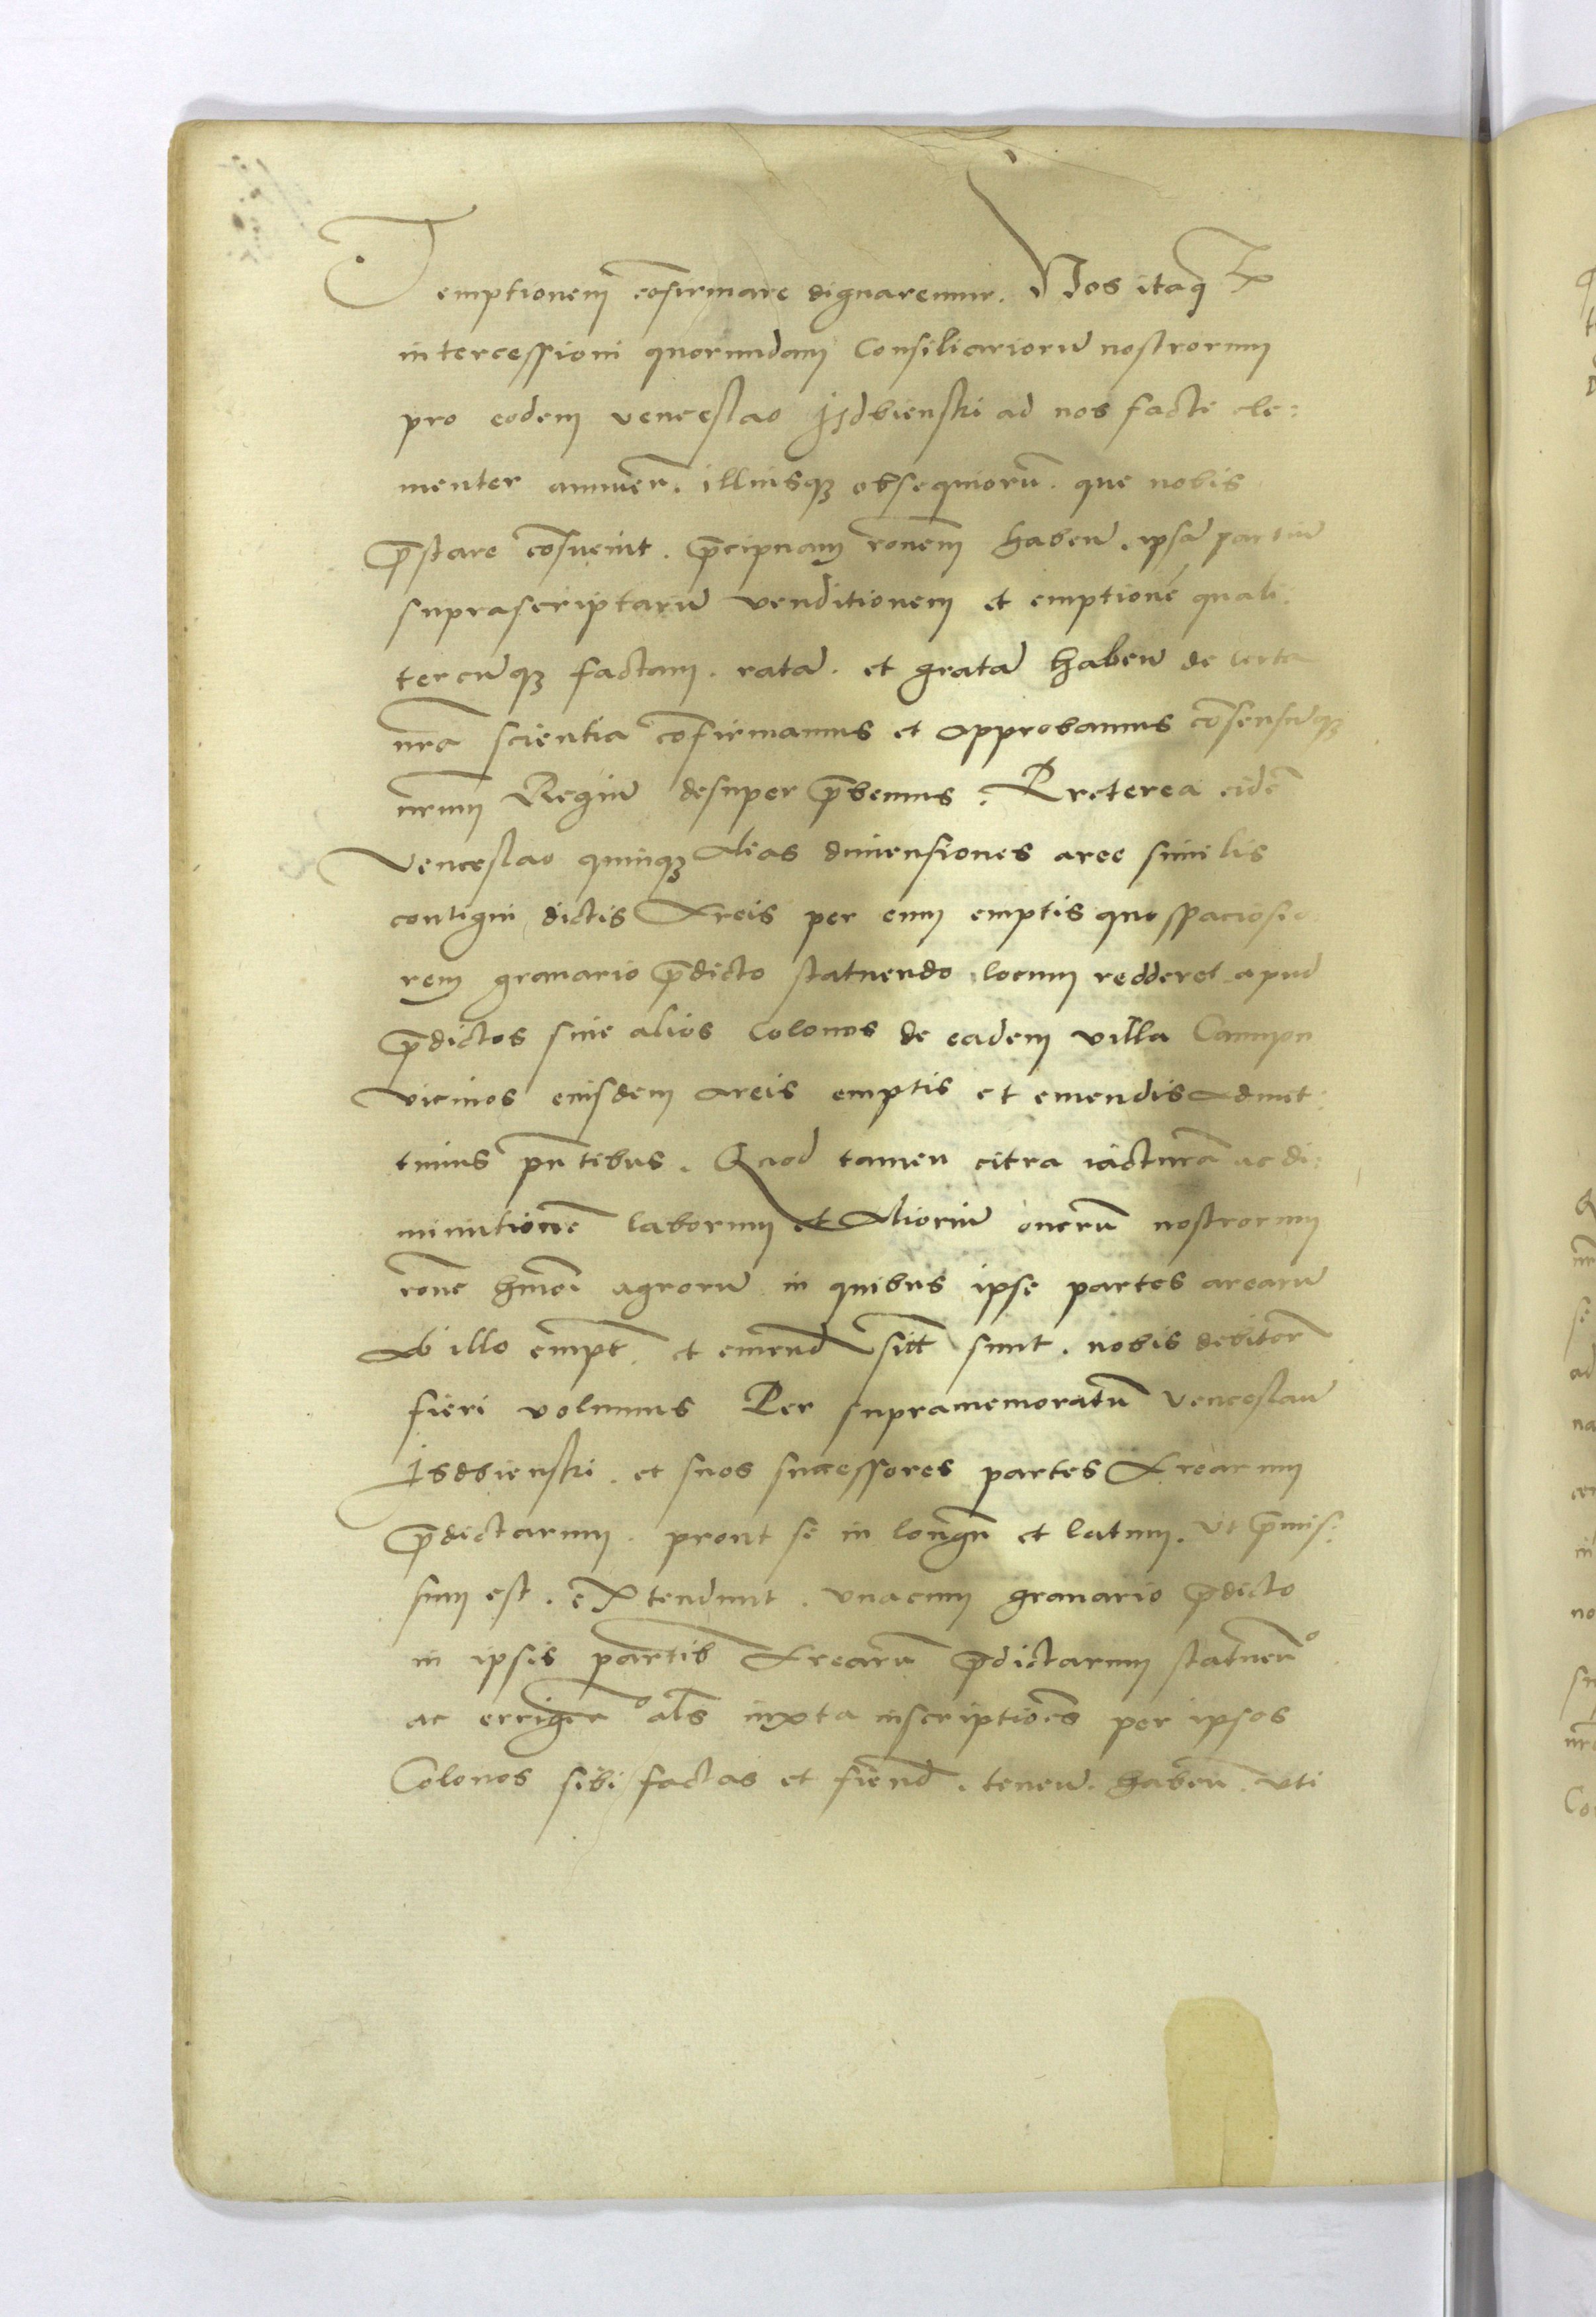 emptionem cōfirmare dignaremur. Nos itaqȝ
intercessioni quorundam Consiliariorū nostrorum
pro eodem venceslao Jzdbienski ad nos facte cle:
menter annuen̄. illiusqȝ obsequiorū. que nobis
p̄stare cōsueuit. p̄cipuam rōnem haben̄. ipsā partiū
suprascriptarū venditionem et emptionē quali:
tercūqȝ factam. ratā. et gratā haben̄ de certa
nr̄a scientia cōfirmamus et approbamus cōsensūqȝ
nr̄um Regiū desuper p̄bemus. Preterea eidē
Venceslao quinqȝ alias dimensiones aree similis
contigui dictis Areis per eum emptis quo spaciosio
rem granario p̄dicto statuendo locum redderet apud
p̄dictos siue alios Colonos de eadem villa
vicinos eiusdem areis emptis et emendis admit:
timus pn̄tibus. Quod tamen citra iacturā ac di:
minutionē laborum et Aliorū onerū nostrorum
rōne hmōi agrorū in quibus ipse partes arearū
ab illo empt̄. et emend̄ sitt̄ sunt. nobis debitorū
fieri volumus Per supramemoratū venceslaū
Isdbienski. et suos successores partes Arearum
p̄dictarum. prout se in longū et latum. ut p̄mis:
sum est. extendunt. vnacum granario p̄dicto
in ipsis partib Arearū p̄dictarum statuen°
ac erigen° als̄ iuxta inscriptiōes per ipsos
Colonos sibi factas et fiend̄. tenen̄. haben̄. uti